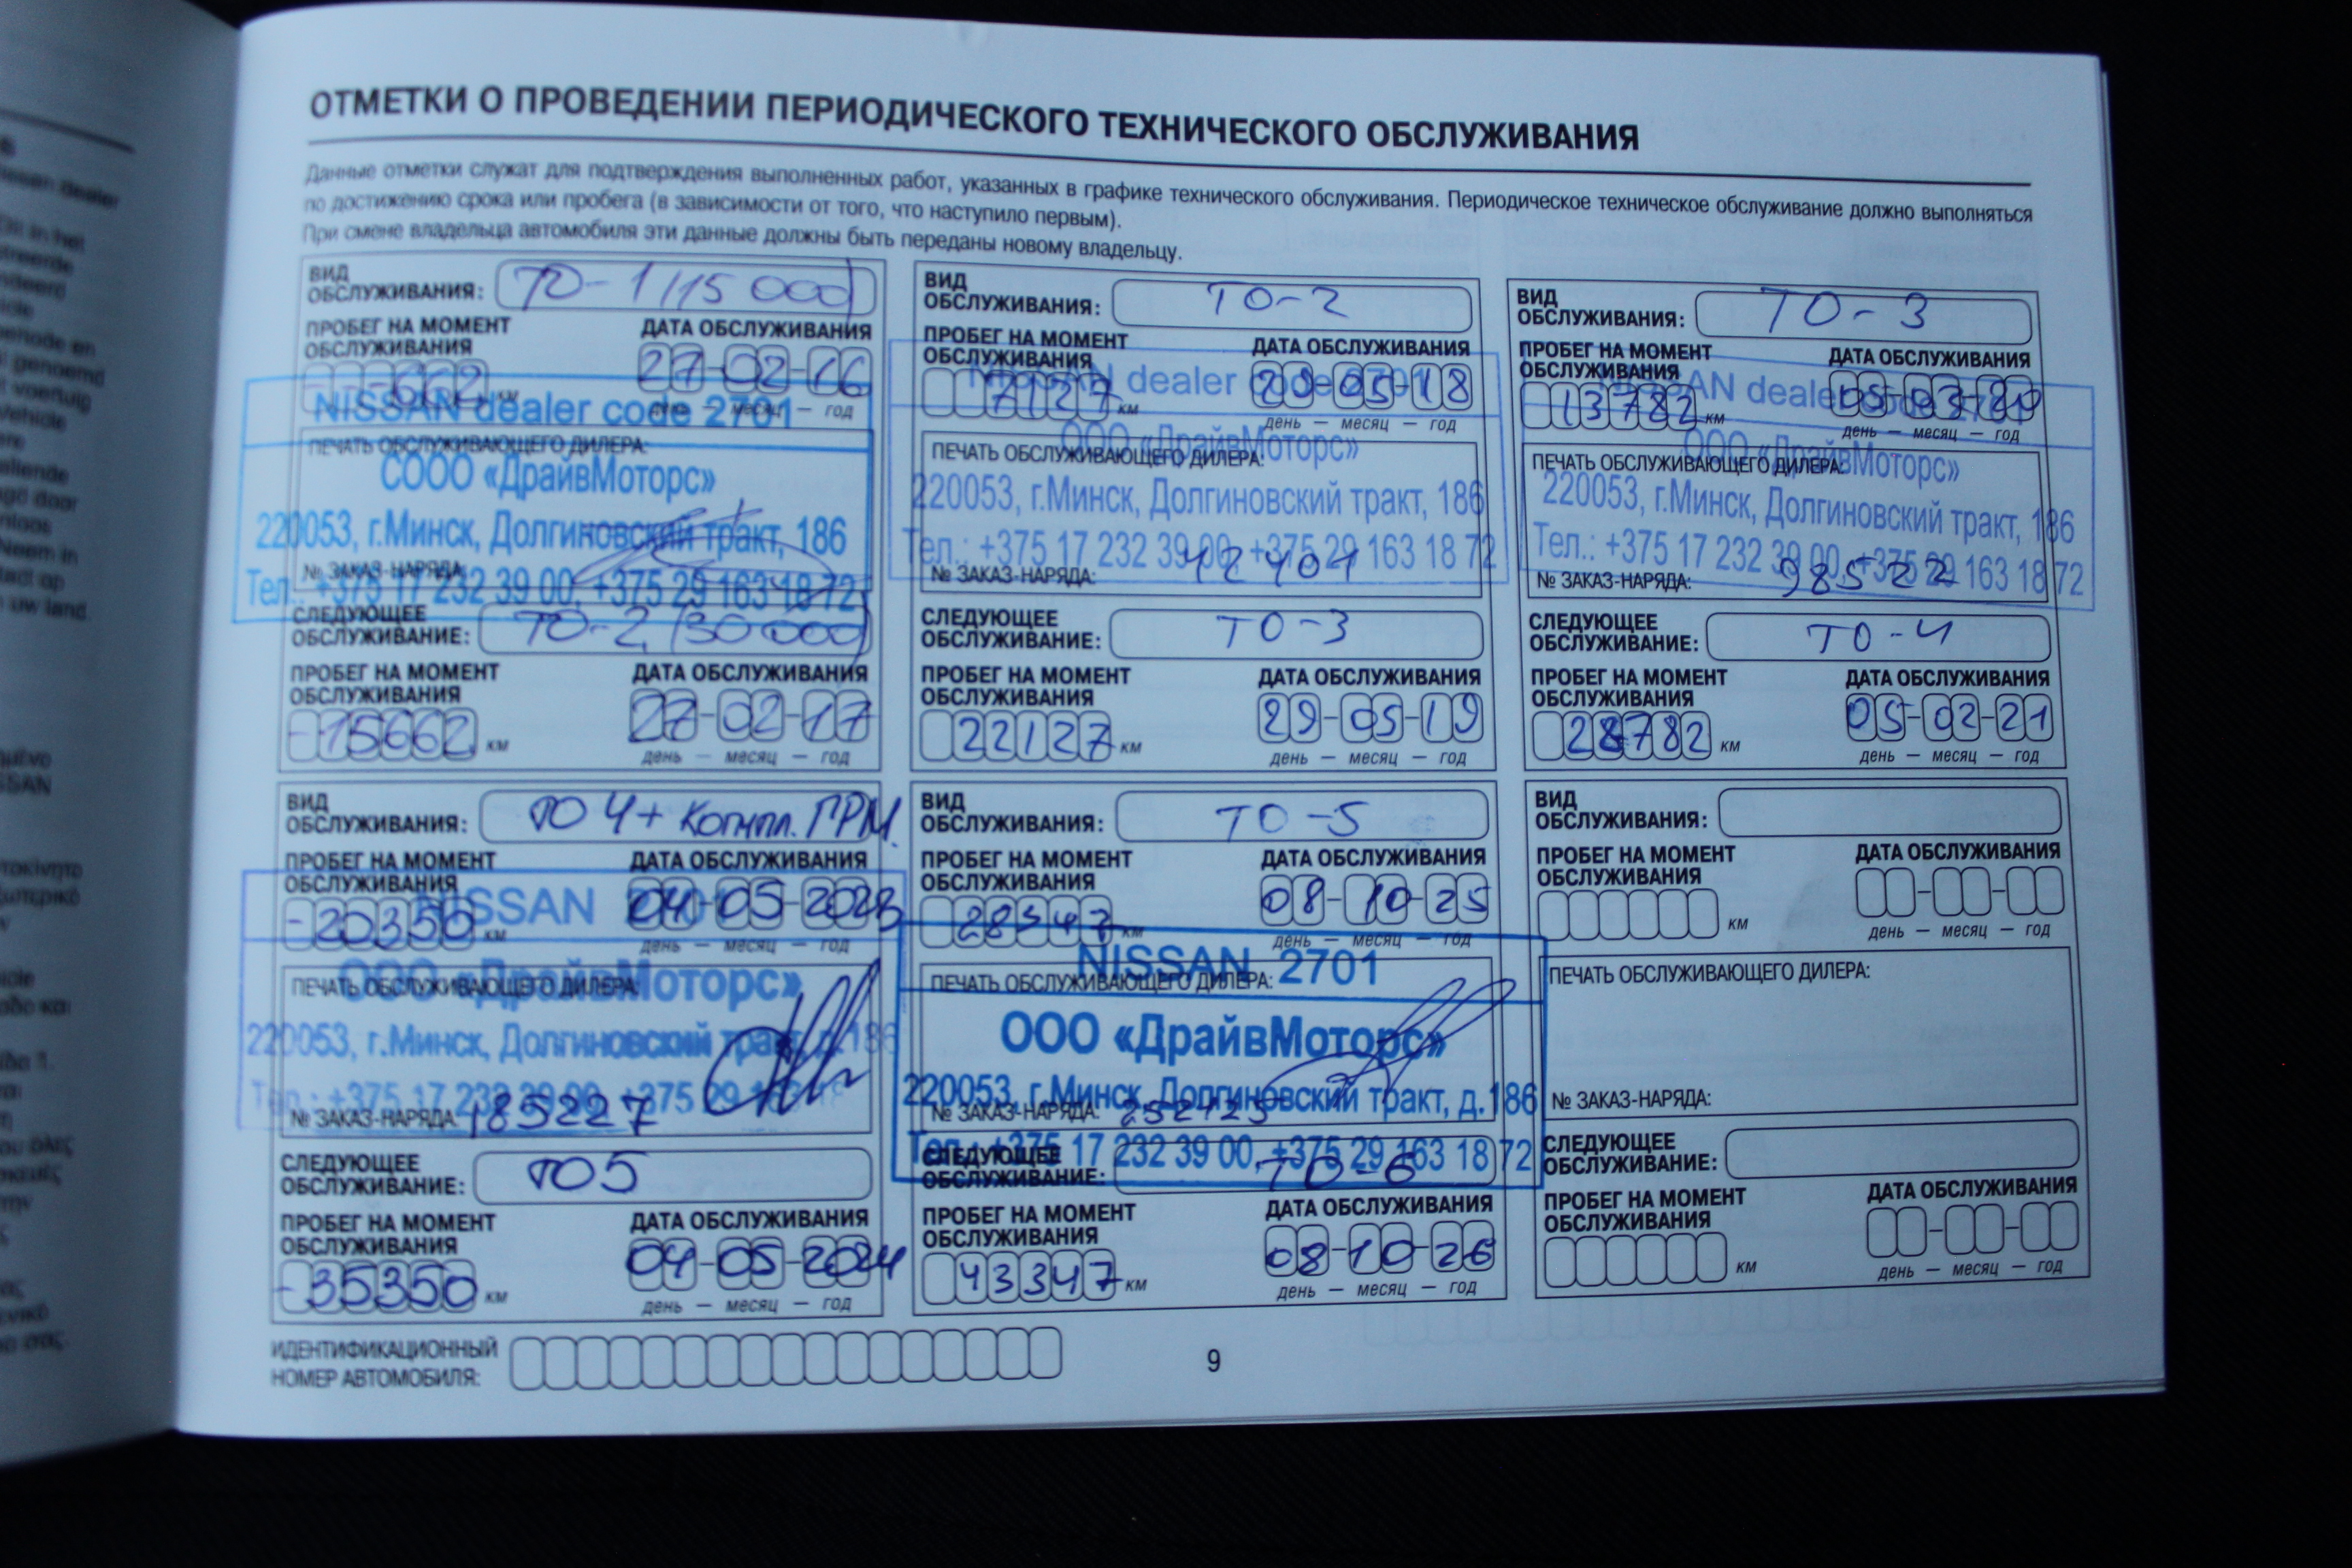 ОТМЕТКИ О ПРОВЕДЕНИИ ПЕРИОДИЧЕСКОГО ТЕХНИЧЕСКОГО ОБСЛУЖИВАНИЯ
Данные отметки служат для подтверждения выполненных работ, указанных в графике технического обслуживания. Периодическое техническое обслуживание должно выполняться
по достижению срока или пробега (в зависимости от того, что наступило первым).
При смене владельца автомобиля эти данные должны быть переданы новому владельцу.
ВИД
ОБСЛУЖИВАНИЯ: ТО-1 (15 000)
ПРОБЕГ НА МОМЕНТ ДАТА ОБСЛУЖИВАНИЯ
ОБСЛУЖИВАНИЯ
- - - 662 км 27-02-16
день — месяц — год
NISSAN dealer code 2701
ПЕЧАТЬ ОБСЛУЖИВАЮЩЕГО ДИЛЕРА:
СООО «ДрайвМоторс»
220053, г.Минск, Долгиновский тракт, 186
№ ЗАКАЗ-НАРЯДА:
Тел.: +375 17 232 39 00, +375 29 163 18 72
СЛЕДУЮЩЕЕ
ОБСЛУЖИВАНИЕ: ТО-2 (30 000)
ПРОБЕГ НА МОМЕНТ ДАТА ОБСЛУЖИВАНИЯ
ОБСЛУЖИВАНИЯ
-15662 км 27-02-17
день — месяц — год
ВИД
ОБСЛУЖИВАНИЯ: ТО-2
ПРОБЕГ НА МОМЕНТ ДАТА ОБСЛУЖИВАНИЯ
ОБСЛУЖИВАНИЯ
7127 км 29-05-18
день — месяц — год
NISSAN dealer code 2701
ООО «ДрайвМоторс»
ПЕЧАТЬ ОБСЛУЖИВАЮЩЕГО ДИЛЕРА:
220053, г.Минск, Долгиновский тракт, 186
Тел.: +375 17 232 39 00, +375 29 163 18 72
№ ЗАКАЗ-НАРЯДА: 42401
СЛЕДУЮЩЕЕ
ОБСЛУЖИВАНИЕ: ТО-3
ПРОБЕГ НА МОМЕНТ ДАТА ОБСЛУЖИВАНИЯ
ОБСЛУЖИВАНИЯ
22127 км 29-05-19
день — месяц — год
ВИД
ОБСЛУЖИВАНИЯ: ТО-3
ПРОБЕГ НА МОМЕНТ ДАТА ОБСЛУЖИВАНИЯ
ОБСЛУЖИВАНИЯ
13782 км
день — месяц — год
NISSAN dealer code 2701
ООО «ДрайвМоторс»
ПЕЧАТЬ ОБСЛУЖИВАЮЩЕГО ДИЛЕРА:
220053, г.Минск, Долгиновский тракт, 186
Тел.: +375 17 232 39 00, +375 29 163 18 72
№ ЗАКАЗ-НАРЯДА: 98522
СЛЕДУЮЩЕЕ
ОБСЛУЖИВАНИЕ: ТО-4
ПРОБЕГ НА МОМЕНТ ДАТА ОБСЛУЖИВАНИЯ
ОБСЛУЖИВАНИЯ
28782 км 05-02-21
день — месяц — год
ВИД
ОБСЛУЖИВАНИЯ: ТО 4+ Компл. ГРМ.
ПРОБЕГ НА МОМЕНТ ДАТА ОБСЛУЖИВАНИЯ
ОБСЛУЖИВАНИЯ
-20350 км 04-05-2023
день — месяц — год
NISSAN 2701
ООО «ДрайвМоторс»
ПЕЧАТЬ ОБСЛУЖИВАЮЩЕГО ДИЛЕРА:
220053, г.Минск, Долгиновский тракт, д.186
Тел.: +375 17 232 39 00, +375 29 163 18
№ ЗАКАЗ-НАРЯДА: 185227
СЛЕДУЮЩЕЕ
ОБСЛУЖИВАНИЕ: ТО5
ПРОБЕГ НА МОМЕНТ ДАТА ОБСЛУЖИВАНИЯ
ОБСЛУЖИВАНИЯ
-35350 км 04-05-2024
день — месяц — год
ВИД
ОБСЛУЖИВАНИЯ: ТО-5
ПРОБЕГ НА МОМЕНТ ДАТА ОБСЛУЖИВАНИЯ
ОБСЛУЖИВАНИЯ
28347 км 08-10-25
день — месяц — год
NISSAN 2701
ПЕЧАТЬ ОБСЛУЖИВАЮЩЕГО ДИЛЕРА:
ООО «ДрайвМоторс»
220053, г.Минск, Долгиновский тракт, д.186
№ ЗАКАЗ-НАРЯДА: 252125
Тел.: +375 17 232 39 00, +375 29 163 18 72
СЛЕДУЮЩЕЕ
ОБСЛУЖИВАНИЕ: ТО-6
ПРОБЕГ НА МОМЕНТ ДАТА ОБСЛУЖИВАНИЯ
ОБСЛУЖИВАНИЯ
43347 км 08-10-26
день — месяц — год
ВИД
ОБСЛУЖИВАНИЯ:
ПРОБЕГ НА МОМЕНТ ДАТА ОБСЛУЖИВАНИЯ
ОБСЛУЖИВАНИЯ
км
день — месяц — год
ПЕЧАТЬ ОБСЛУЖИВАЮЩЕГО ДИЛЕРА:
№ ЗАКАЗ-НАРЯДА:
СЛЕДУЮЩЕЕ
ОБСЛУЖИВАНИЕ:
ПРОБЕГ НА МОМЕНТ ДАТА ОБСЛУЖИВАНИЯ
ОБСЛУЖИВАНИЯ
км
день — месяц — год
ИДЕНТИФИКАЦИОННЫЙ
НОМЕР АВТОМОБИЛЯ:
9